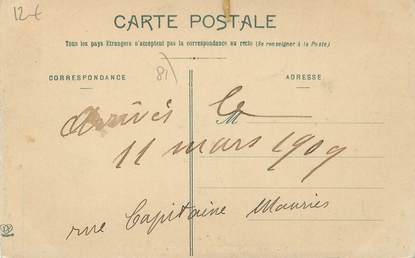 12 €
CARTE POSTALE
Tous les pays Etrangers n'acceptent pas la correspondance au recto (Se renseigner à la Poste)
81
CORRESPONDANCE
ADRESSE
Arrivés le
M
11 mars 1909
rue Capitaine Mauriès